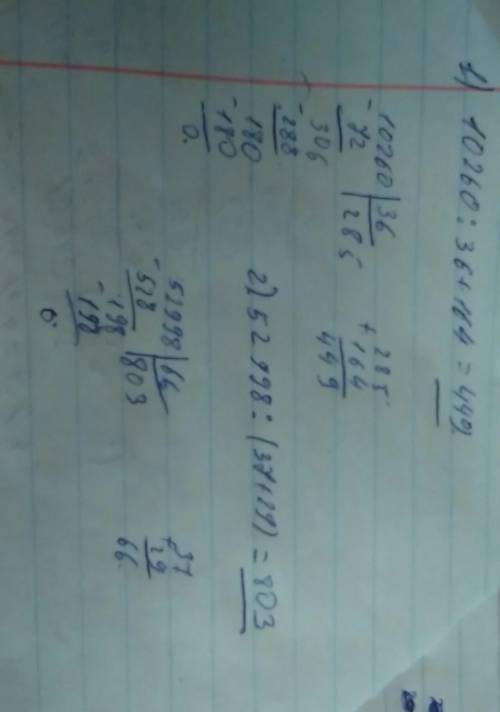 1) 10260 : 36 + 164 = 449
- 10260 | 36
72 | 285
306
- 288
180
- 180
0
285
+ 164
449
2) 52 998 : (37 + 29) = 803
52998 | 66
- 528 | 803
198
- 198
0
37
+ 29
66